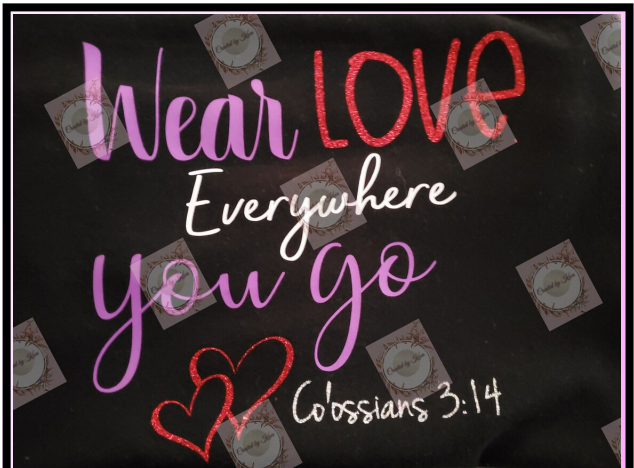 Wear LOVE
Everywhere
you go
Colossians 3:14